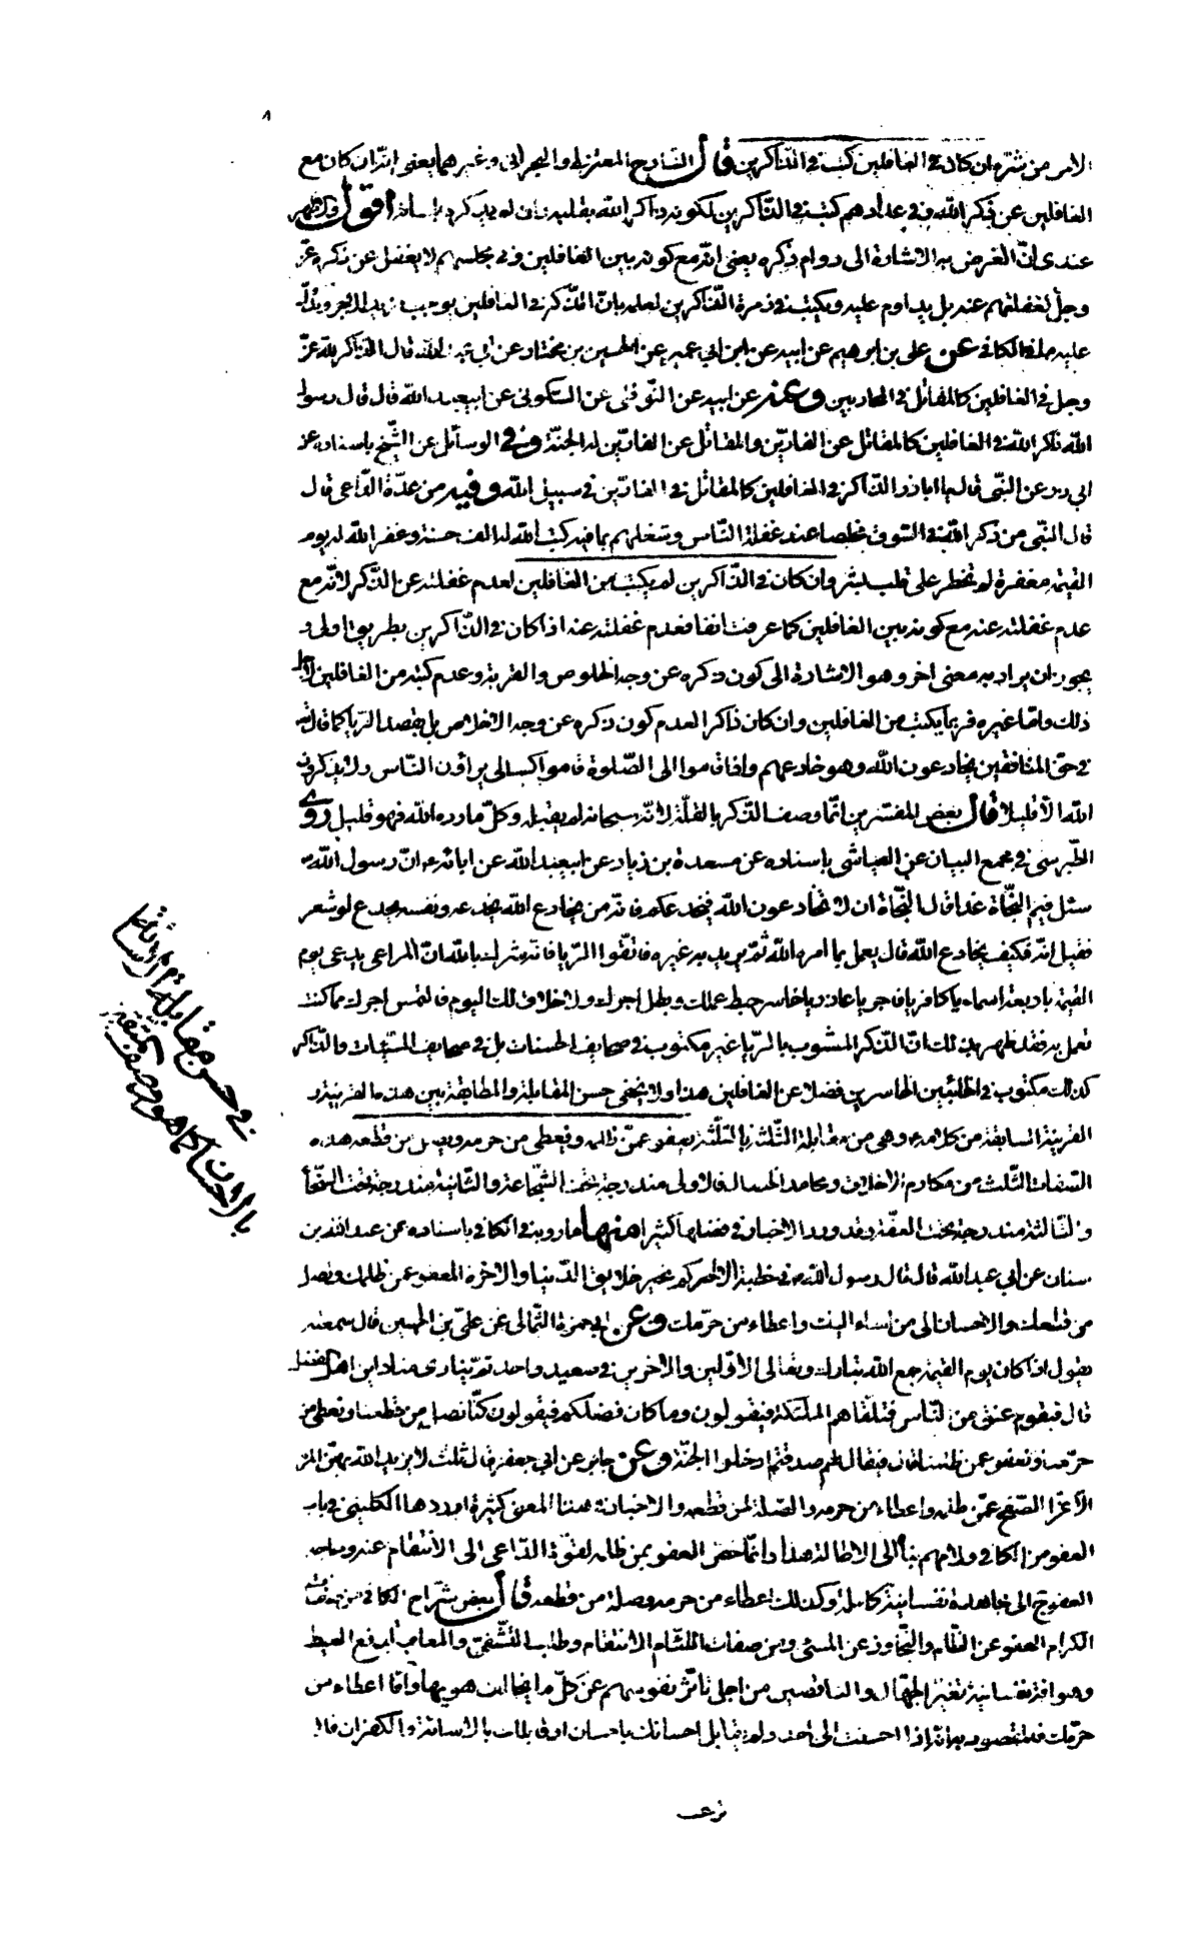 ٨
الامر من شره ان كان فى الغافلين كتب فى الذاكرين قال الشارح المعتزلى والبحرانى وغيرهما يعنى انه ان كان مع
الغافلين عن ذكر الله وفى عدادهم كتب فى الذاكرين لكونه ذاكر الله بقلبه وان لم يذكره بلسانه اقول والاظهر
عندى ان الغرض به الاشارة الى دوام ذكره يعنى انه مع كونه بين الغافلين وفى مجلسهم لا يغفل عن ذكره عز
وجل لغفلتهم عنه بل يداوم عليه ويكتب فى زمرة الذاكرين لعلمه بان الذكر فى الغافلين يوجب مزيد الاجر ويدل
عليه ما فى الكافى عن على بن ابرهيم عن ابيه عن ابن ابى عمير عن الحسين بن مختار عن ابى عبد الله قال الذاكر لله عز
وجل فى الغافلين كالمقاتل فى المحاربين وعنه عن ابيه عن النوفلى عن السكونى عن ابيعبد الله قال قال رسول
الله ذاكر الله فى الغافلين كالمقاتل عن الفارين والمقاتل عن الفارين له الجنة وفى الوسائل عن الشيخ باسناده عن
ابى ذر عن النبى قال يا اباذر الذاكر فى الغافلين كالمقاتل فى الفارين فى سبيل الله وفيه من عدة الداعى قال
قال النبى من ذكر الله فى السوق مخلصا عند غفلة الناس وشغلهم بما فيه كتب الله له الف حسنة وغفر الله له يوم
القيمة مغفرة لم تخطر على قلب بشر وان كان فى الذاكرين لم يكتب من الغافلين لعدم غفلته عن الذكر لانه مع
عدم غفلته عنه مع كونه بين الغافلين كما عرفت انفا فعدم غفلته عنه اذا كان فى الذاكرين بطريق اولى و
يجوز ان يراد به معنى اخر وهو الاشارة الى كون ذكره عن وجه الخلوص والقربة وعدم كتبه من الغافلين لاجل
ذلك واما غيره فربما يكتب من الغافلين وان كان ذاكرا لعدم كون ذكره عن وجه الاخلاص بل بقصد الريا كما قال الله
فى حق المنافقين يخادعون الله وهو خادعهم واذا قاموا الى الصلوة قاموا كسالى يراؤن الناس ولا يذكرون
الله الا قليلا قال بعض المفسرين انما وصف الذكر بالقلة لانه سبحانه لم يقبله وكل ما رده الله فهو قليل روى
الطبرسى فى مجمع البيان عن العياشى باسناده عن مسعدة بن زياد عن ابيعبد الله عن ابائه ان رسول الله
سئل فيم النجاة غدا قال النجاة ان لا تخادعون الله فيخدعكم فانه من يخادع الله يخدعه ونفسه يخدع لو شعر
فقيل له فكيف يخادع الله قال يعمل بما امره الله ثم يريد به غيره فاتقوا الريا فانه شرك بالله ان المرائى يدعى يوم
القيمة باربعة اسماء يا كافر يا فاجر يا غادر يا خاسر حبط عملك وبطل اجرك ولا خلاق لك اليوم فالتمس اجرك ممن كنت
تعمل له فقد ظهر بذلك ان الذكر المشوب بالريا غير مكتوب فى صحايف الحسنات بل فى صحايف السيئات والذاكر
كذلك مكتوب فى الخائبين الخاسرين فضلا عن الغافلين هذا ولا يخفى حسن المقابلة والمطابقة بين هذه القرينة و
القرينة السابقة من كلامه وهى من مقابلة الثلث بالثلثة يعفو عمن ظلمه ويعطى من حرمه ويصل من قطعه هذه
الصفات الثلث من مكارم الاخلاق ومحامد الخصال فالاولى مندرجة تحت الشجاعة والثانية مندرجة تحت السخأ
والثالثة مندرجة تحت العفة وقد ورد الاخبار فى فضلها كثيرا منها ما رويه فى الكافى باسناده عن عبد الله بن
سنان عن ابى عبد الله قال قال رسول الله فى خطبة الا اخبركم بخير خلايق الدنيا والاخرة العفو عمن ظلمك وتصل
من قطعك والاحسان الى من اساء اليك واعطاء من حرمك وعن ابى حمزة الثمالى عن على بن الحسين قال سمعته
يقول اذا كان يوم القيمة جمع الله تبارك وتعالى الاولين والاخرين فى صعيد واحد ثم ينادى مناد اين اهل الفضل
قال فيقوم عنق من الناس فتلقاهم الملئكة فيقولون وما كان فضلكم فيقولون كنا نصل من قطعنا ونعطى من
حرمنا ونعفو عمن ظلمنا قال فيقال لهم صدقتم ادخلوا الجنة وعن جابر عن ابى جعفر قال ثلث لا يزيد الله بهن المرء
الا عزا الصفح عمن ظلمه واعطاء من حرمه والصلة لمن قطعه والاخبار فى هذا المعنى كثيرة اوردها الكلينى فى باب
العفو من الكافى ولا مهم بنا الى الاطالة هذا وانما خص العفو بمن ظلمه لقوة الداعى الى الانتقام عنده
العفو ح الى مجاهدة نفسانية كاملة وكذلك اعطاء من حرمه وصلة من قطعه قال بعض شراح الكافى من صفات
الكرام العفو عن الظالم والتجاوز عن المسئ ومن صفات اللئام الانتقام وطلب التشفى لدفع الغيظ
وهو افة نفسانية تغير الجهال والناقصين من اجل تاثر نفوسهم عن كل ما يخالف هويها واما اعطاء من
حرمك فالمقصود به انه اذا احسنت الى احد ولم يقابل احسانك باحسان او قابلك بالاساءة والكفران فلا
ترغب
فى حسن مقابلة
بالاحسان كما هو